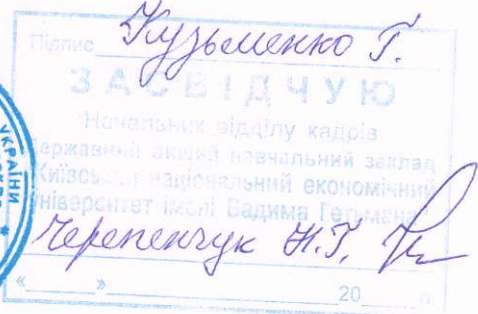 Підпис Кузьменко Т.
ЗАСВІДЧУЮ
Начальник відділу кадрів
Державний вищий навчальний заклад
Київський національний економічний
університет імені Вадима Гетьмана
Н.Г.
« » 20 р.
УКРАЇНИ